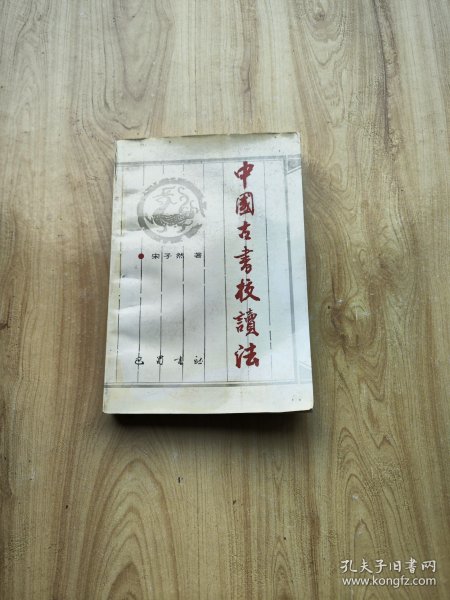 中國古書校讀法
宋子然 著
巴蜀書社
孔夫子旧书网
www.kongfz.com